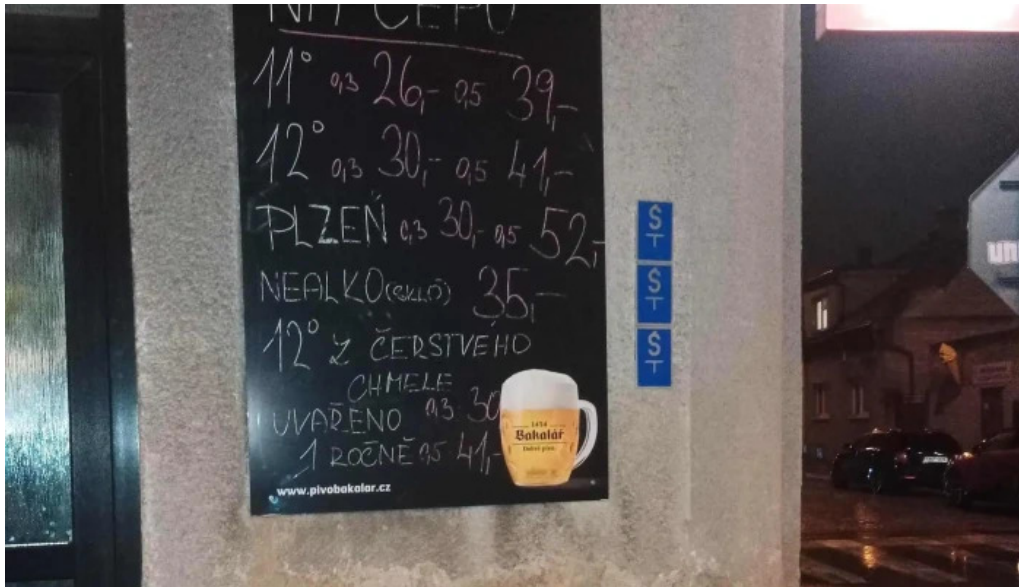 NA ČEPU
11° 0,3 26,- 0,5 39,-
12° 0,3 30,- 0,5 41,-
PLZEŇ 0,3 30,- 0,5 52,-
NEALKO (SKLO) 35,-
12° Z ČERSTVÉHO
CHMELE
UVAŘENO 0,3 30
1 ROČNĚ 0,5 41,-
1454
Bakalář
www.pivobakalar.cz
Š
T
Š
T
Š
T
un